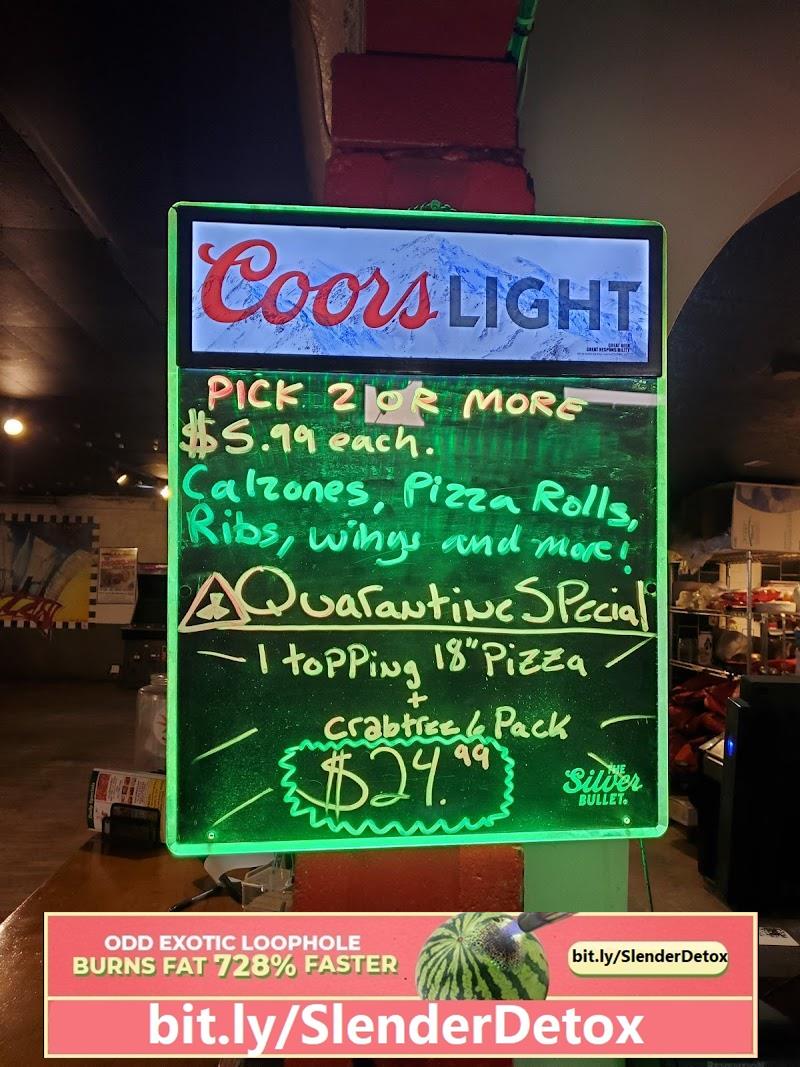 Coors LIGHT
PICK 2 OR MORE
$5.99 each.
Calzones, Pizza Rolls,
Ribs, wings and more!
Quarantine Special
1 topping 18" Pizza
+
Crabtree 6 Pack
$24.99
THE
Silver
BULLET.
ODD EXOTIC LOOPHOLE
BURNS FAT 728% FASTER
bit.ly/SlenderDetox
bit.ly/SlenderDetox